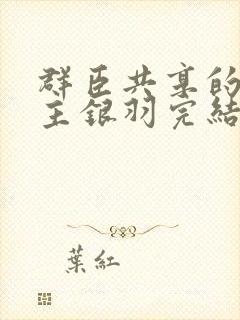 群臣共享的
主銀羽完結
葉紅